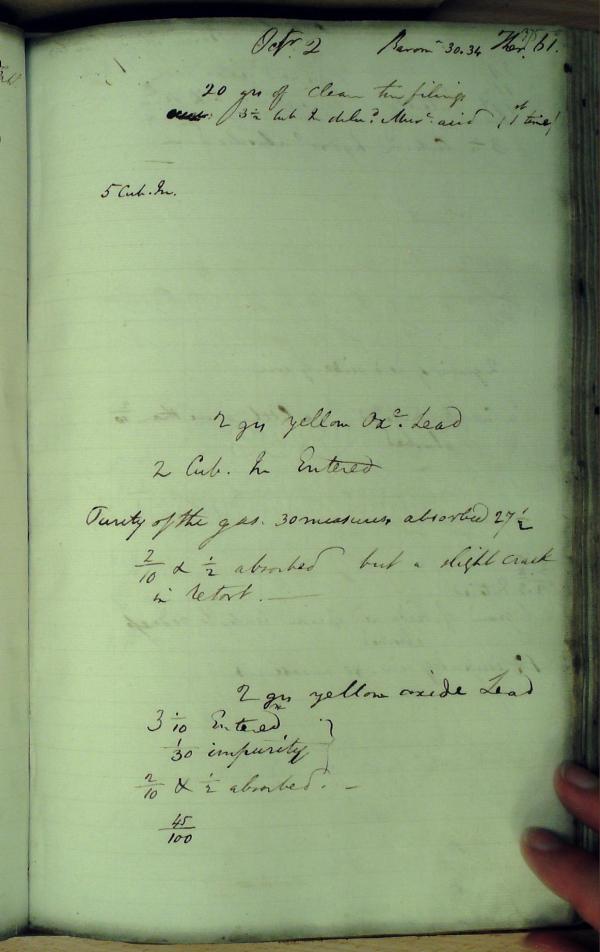 Octr. 2 Baromr 30.34 Ther. 61.
20 grs of clean tin filings
3 1/2 Cub In dilud. Murc. acid (1st time)
5 Cub. In.
2 grs yellow Oxd. Lead
2 Cub. In Entered
Purity of the gas. 30 measures absorbed 27 1/2
2/10 & 1/2 absorbed but a slight crack
in retort.
2 grs yellow oxide Lead
3 1/10 Entered
1/30 impurity
2/10 & 1/2 absorbed. -
45/100